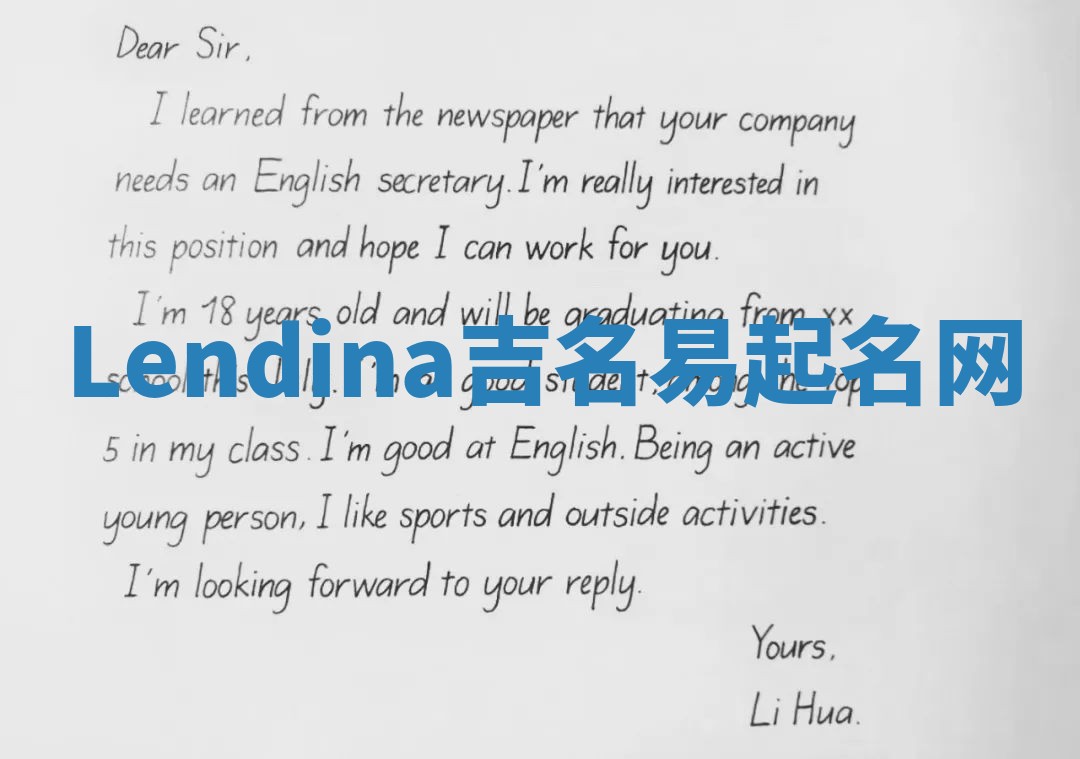 Dear Sir,
I learned from the newspaper that your company
needs an English secretary. I'm really interested in
this position and hope I can work for you.
I'm 18 years old and will be graduating from xx
Lendina吉名易起名网
school this July. I'm a good student, among the top
5 in my class. I'm good at English. Being an active
young person, I like sports and outside activities.
I'm looking forward to your reply.
Yours,
Li Hua.